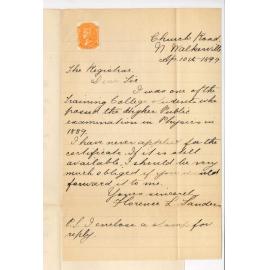 Church Road,
N. Walkerville
Ap. 10th 1897
The Registrar,
Dear Sir
I was one of the
Training College students who
passed the Higher Public
examination in Physics in
1889.
I have never applied for the
certificate. If it is still
available, I should be very
much obliged if you would
forward it to me.
Yours sincerely
Florence L. Sanders
P.S. I enclose a stamp for
reply.